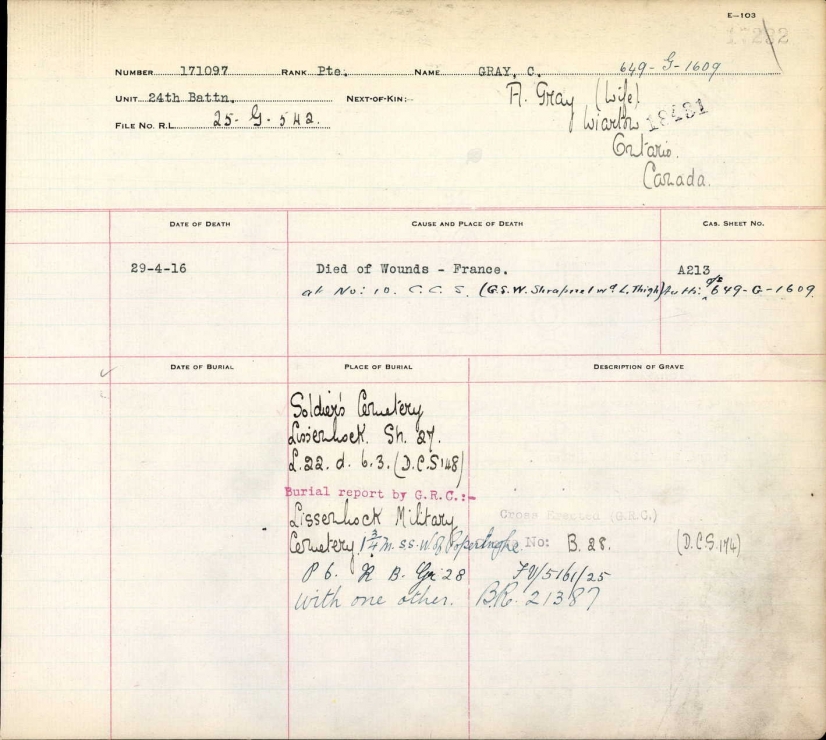 E—103
17232
NUMBER 171097 RANK Pte. NAME GRAY, C. 649-G-1609
UNIT 24th Battn. NEXT-OF-KIN:- A. Gray (Wife)
Wiarton 18431
FILE No. R.L. 25-G-542.
Ontario.
Canada.
DATE OF DEATH CAUSE AND PLACE OF DEATH CAS. SHEET NO.
29-4-16 Died of Wounds - France. A213
at No: 10. C.C.S. (G.S.W. Shrapnel wd L. Thigh) Auth: 649-G-1609
DATE OF BURIAL PLACE OF BURIAL DESCRIPTION OF GRAVE
Soldier's Cemetery
Lissenhock. Sh. 27.
L.22. d. 6.3. (D.C.S 148)
Burial report by G.R.C.:-
Lissenhock Military Cross Erected (G.R.C.)
Cemetery 1¾ m. s.s.W. of Poperinghe. No: B. 28. (D.C.S. 174)
P 6. R B. Gr 28 FV/5161/25
with one other. B.R. 21387